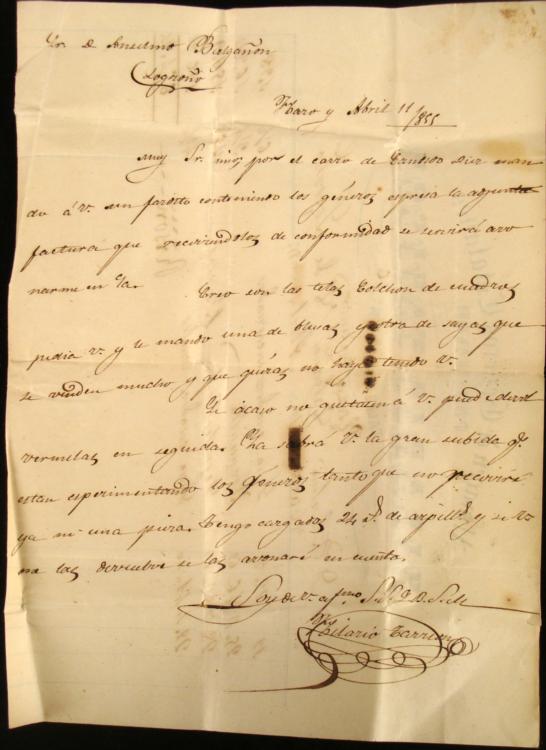 Sr. D. Anselmo Belzañon
Logroño
Haro y Abril 11/855
Muy Sr. mio: por el carro de Candido Diez man
do á V. un fardito conteniendo los géneros espresa la adjunta
factura que recivindolos de conformidad se servirá avo
narme en cta.
Creo son las telas Colchon de cuadros
pedia V. y le mando una de blusas y otra de sayas que
se venden mucho y que quizas no haya tenido V.
Si acaso no gustasen á V. puede devol
vermelas en seguida. Ya sabrá V. la gran subida q.
estan esperimentando los géneros tanto que no recivire
ya ni una pieza. Tengo cargados 24 de arpille y si V.
me las devuelve se las avonaré en cuenta.
Soy de V. afmo. S. S. Q. B. S. M.
Hilario